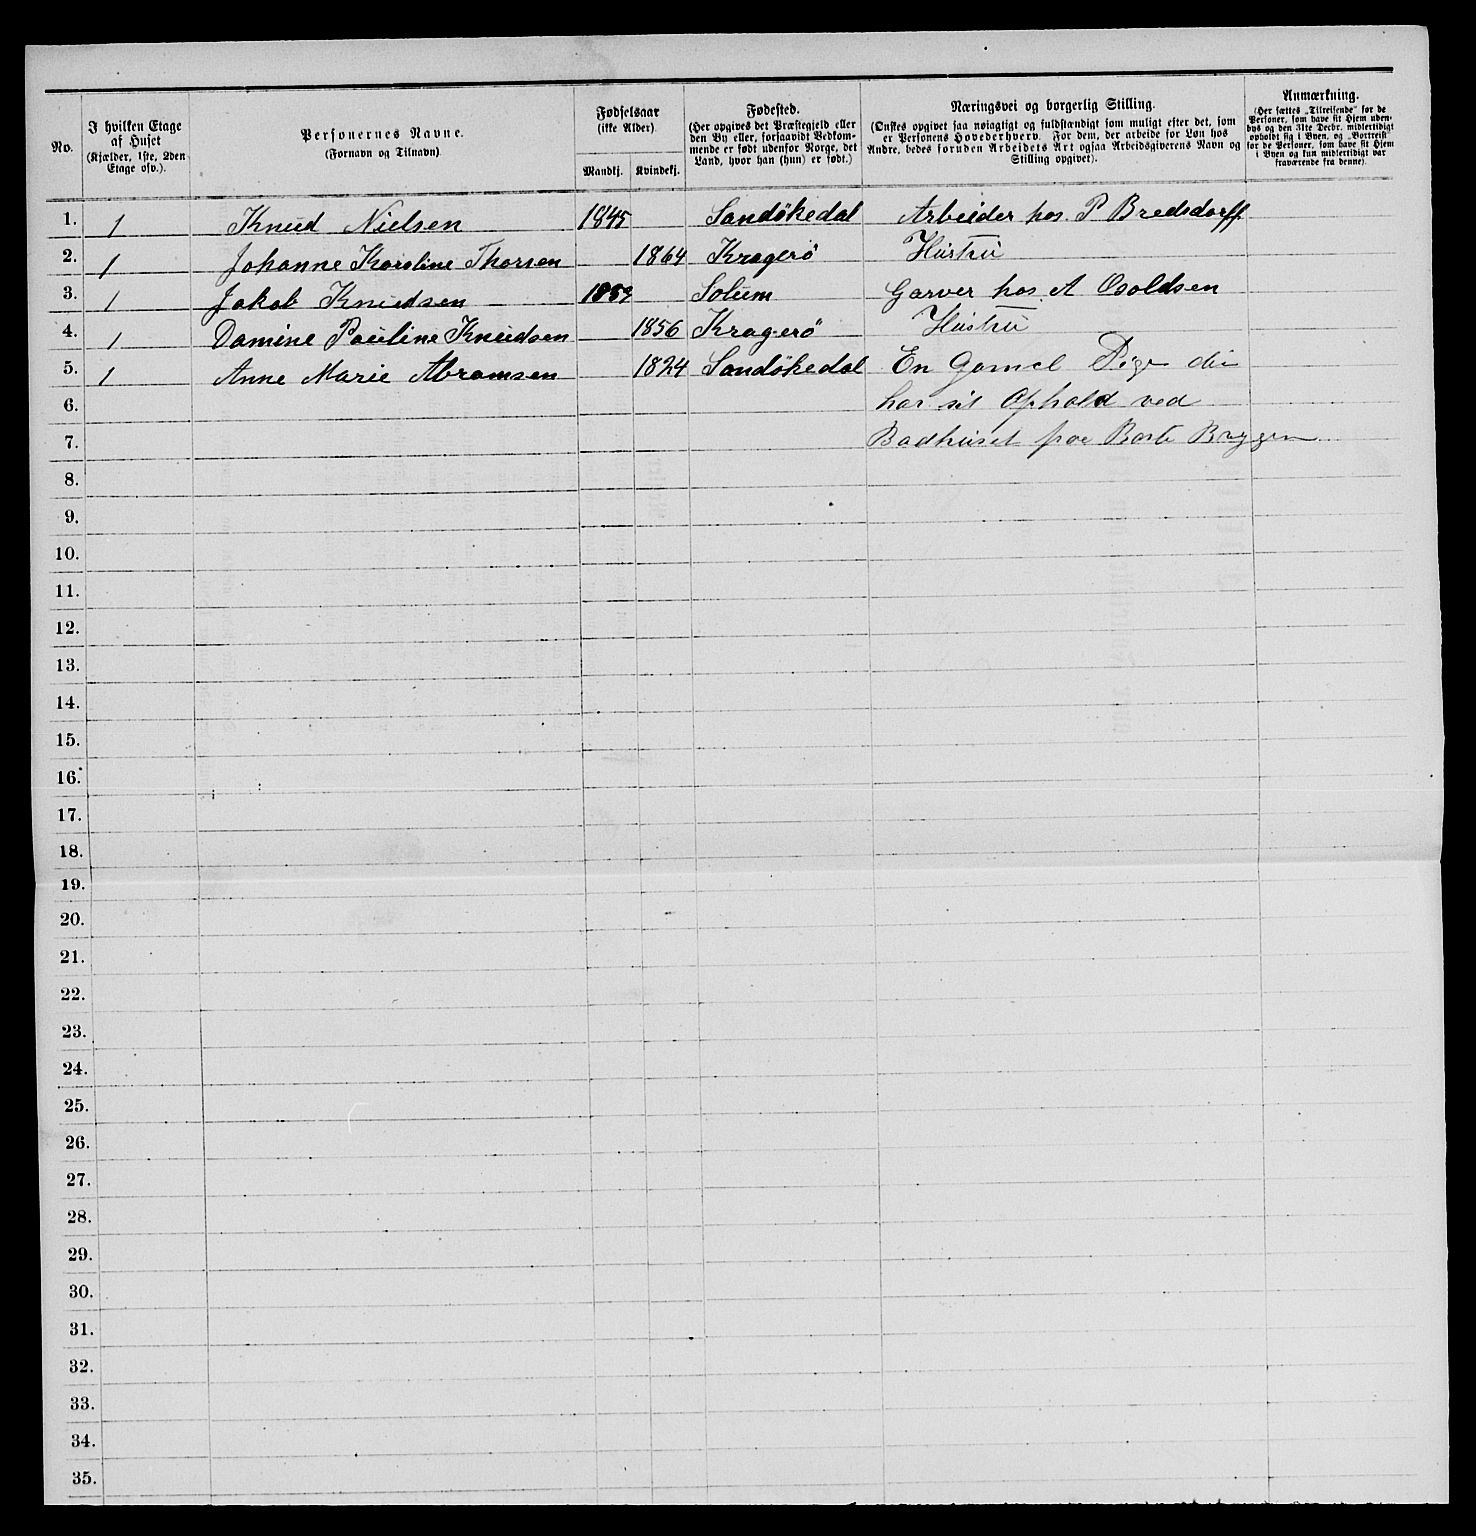 No.
I hvilken Etage af Huset (Kjælder, 1ste, 2den Etage osv.).
Personernes Navne. (Fornavn og Tilnavn)
Fødselsaar (ikke Alder)
Mandkj. Kvindekj.
Fødested. (Her opgives det Præstegjeld eller den By eller, forsaavidt Vedkommende er født udenfor Norge, det Land, hvor han (hun) er født.)
Næringsvei og borgerlig Stilling. (Ønskes opgivet saa nøiagtigt og fuldstændigt som muligt efter det, som er Personens Hovederhverv. For dem, der arbeide for Løn hos Andre, bedes foruden Arbeidets Art ogsaa Arbeidsgiverens Navn og Stilling opgivet).
Anmærkning. (Her sættes „Tilreisende" for de Personer, som have sit Hjem udenbys og den 31te Decbr. midlertidigt opholdt sig i Byen, og „Bortreist" for de Personer, som have sit Hjem i Byen og kun midlertidigt var fraværende fra denne).
1. 1 Knud Nielsen 1845 Sandökedal Arbeider hos. P Bredsdorff.
2. 1 Johanne Karoline Thorsen 1864 Kragerö Hustru
3. 1 Jakob Knudsen 1859 Solum Garver hos. A Osoldsen
4. 1 Damine Pauline Knudsen 1856 Kragerö Hustru
5. 1 Anne Marie Abramsen 1824 Sandökedal En Gamel Pige der
6. har sit Ophold ved
7. Badhuset paa Bryggen
8.
9.
10.
11.
12.
13.
14.
15.
16.
17.
18.
19.
20.
21.
22.
23.
24.
25.
26.
27.
28.
29.
30.
31.
32.
33.
34.
35.